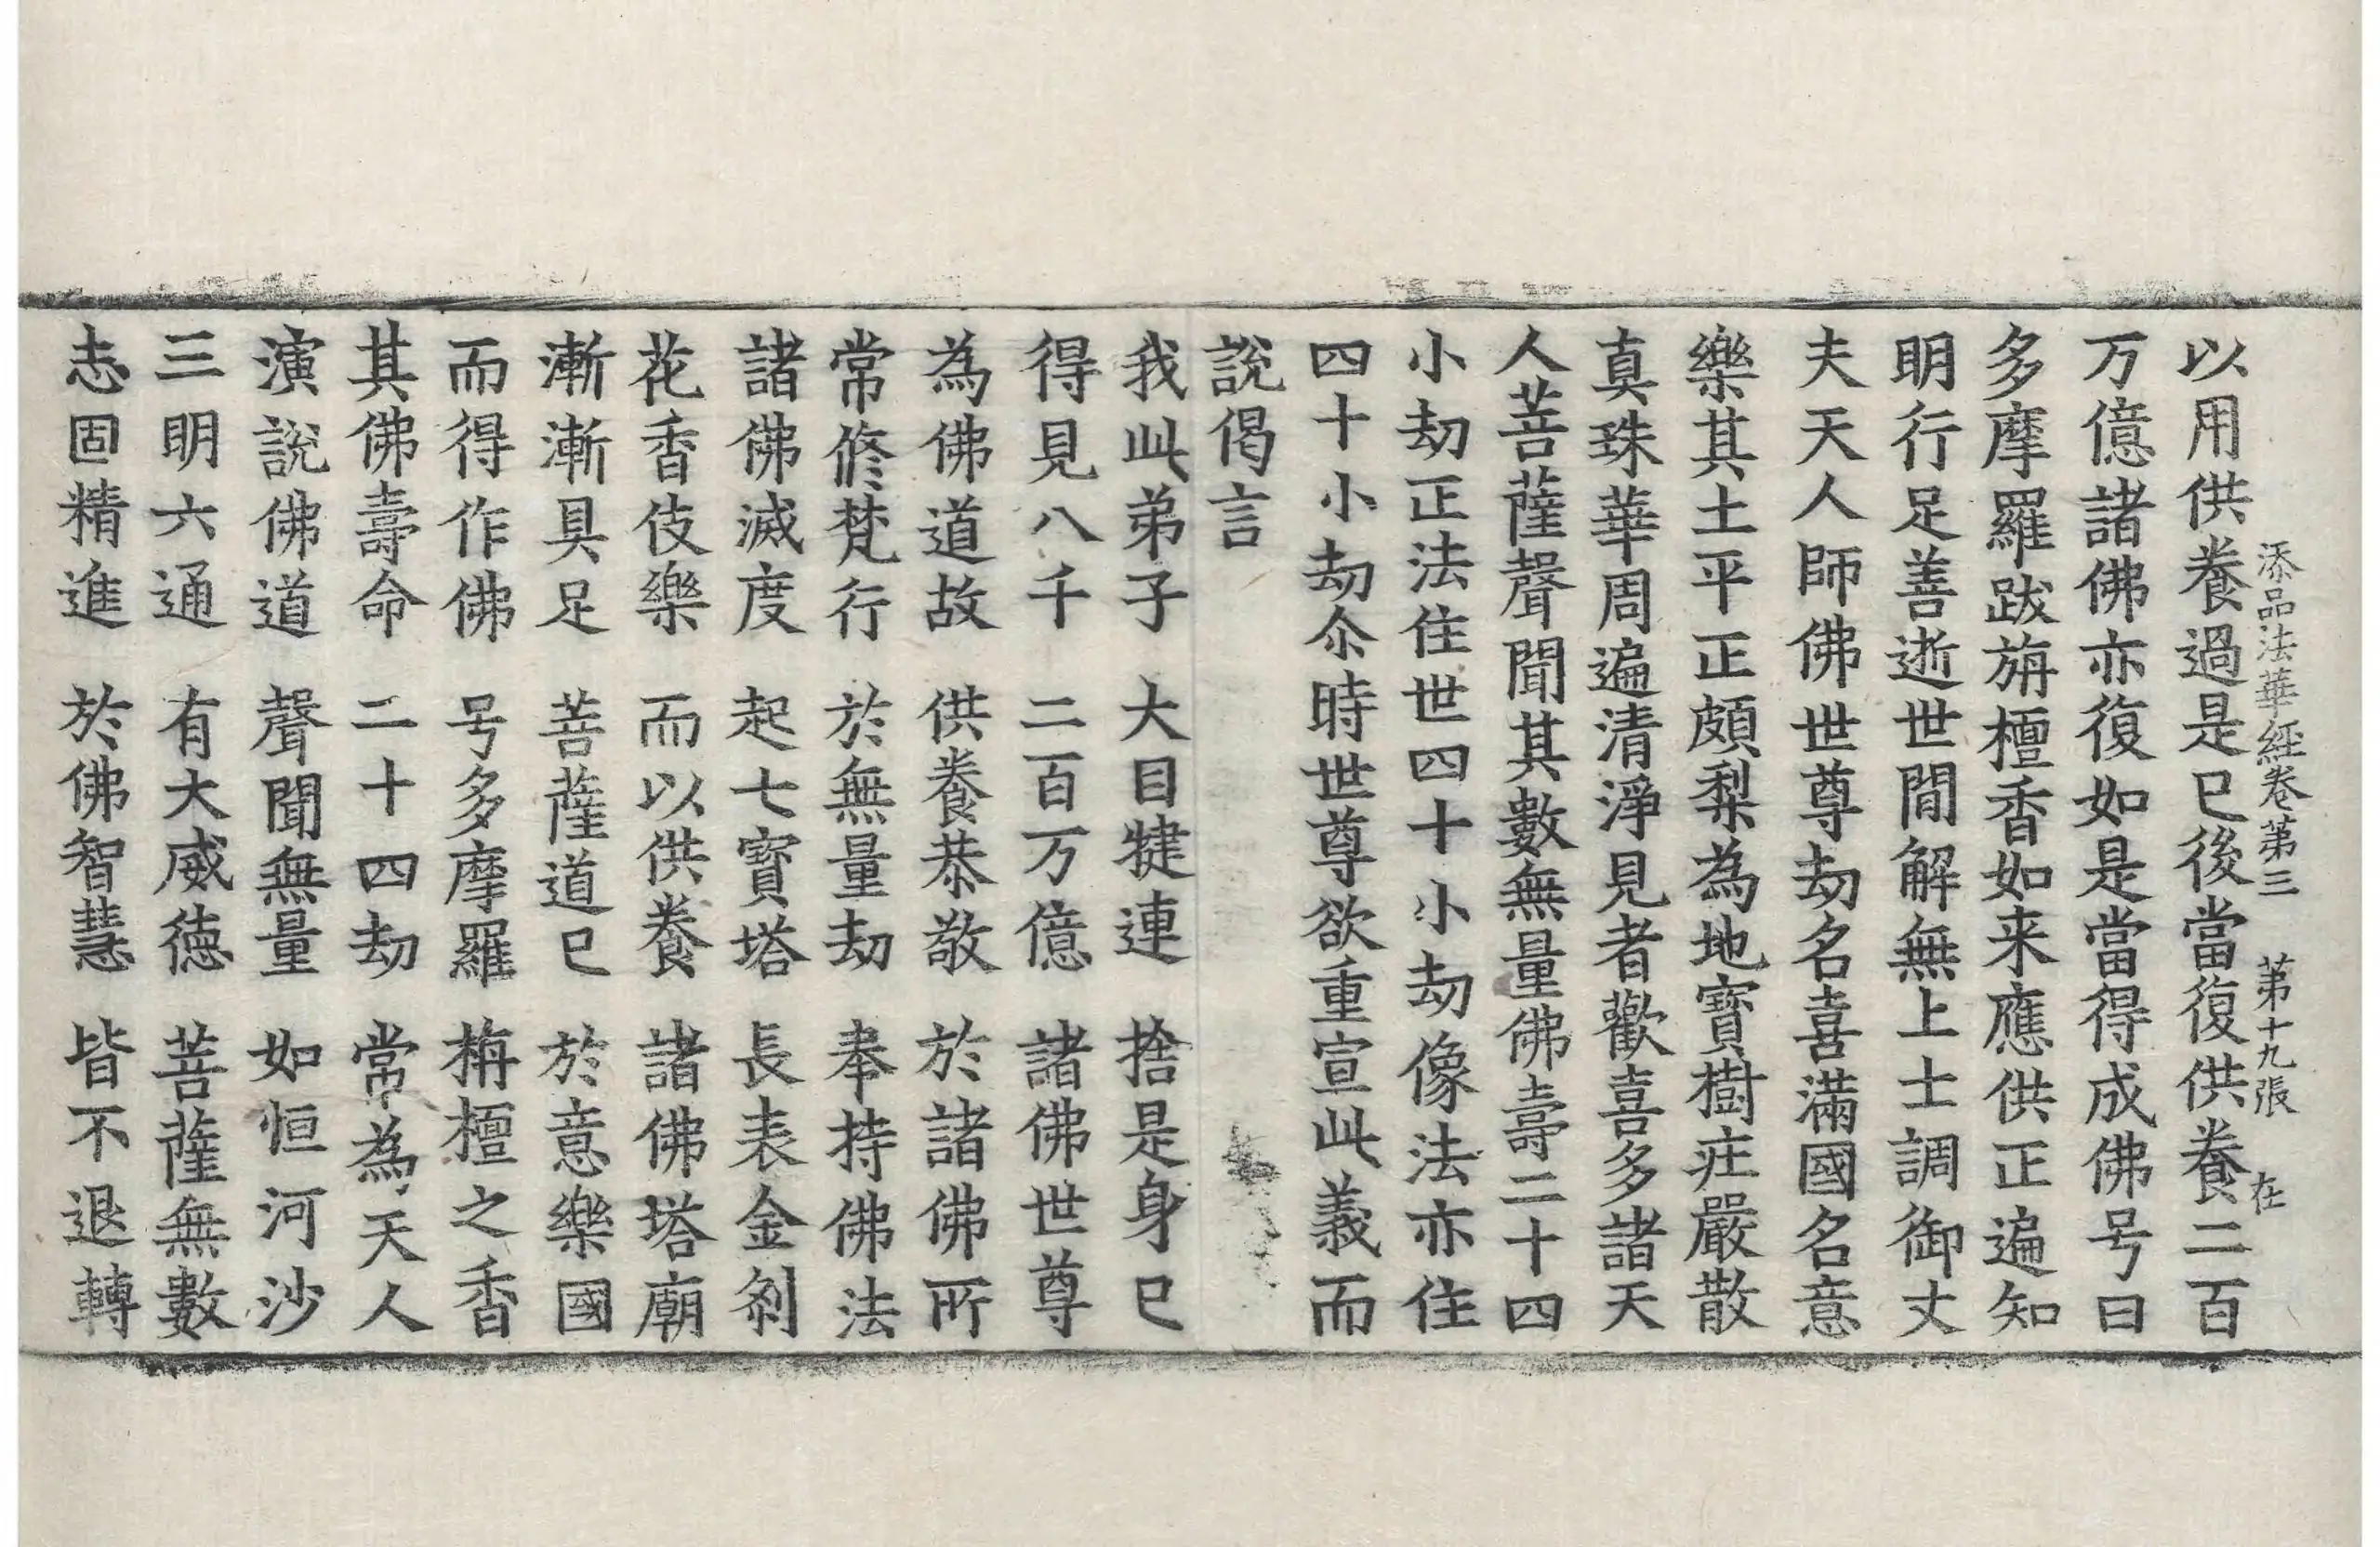 添品法華經卷第三 第十九張 在
以用供養過是已後當復供養二百
万億諸佛亦復如是當得成佛号曰
多摩羅跋旃檀香如来應供正遍知
明行足善逝世間解無上士調御丈
夫天人師佛世尊劫名喜滿國名意
樂其土平正頗梨為地寶樹庄嚴散
真珠華周遍清淨見者歡喜多諸天
人菩薩聲聞其數無量佛壽二十四
小劫正法住世四十小劫像法亦住
四十小劫尒時世尊欲重宣此義而
說偈言
我此弟子 大目犍連 捨是身已
得見八千 二百万億 諸佛世尊
為佛道故 供養恭敬 於諸佛所
常修梵行 於無量劫 奉持佛法
諸佛滅度 起七寶塔 長表金剎
花香伎樂 而以供養 諸佛塔廟
漸漸具足 菩薩道已 於意樂國
而得作佛 号多摩羅 栴檀之香
其佛壽命 二十四劫 常為天人
演說佛道 聲聞無量 如恒河沙
三明六通 有大威德 菩薩無數
志固精進 於佛智慧 皆不退轉